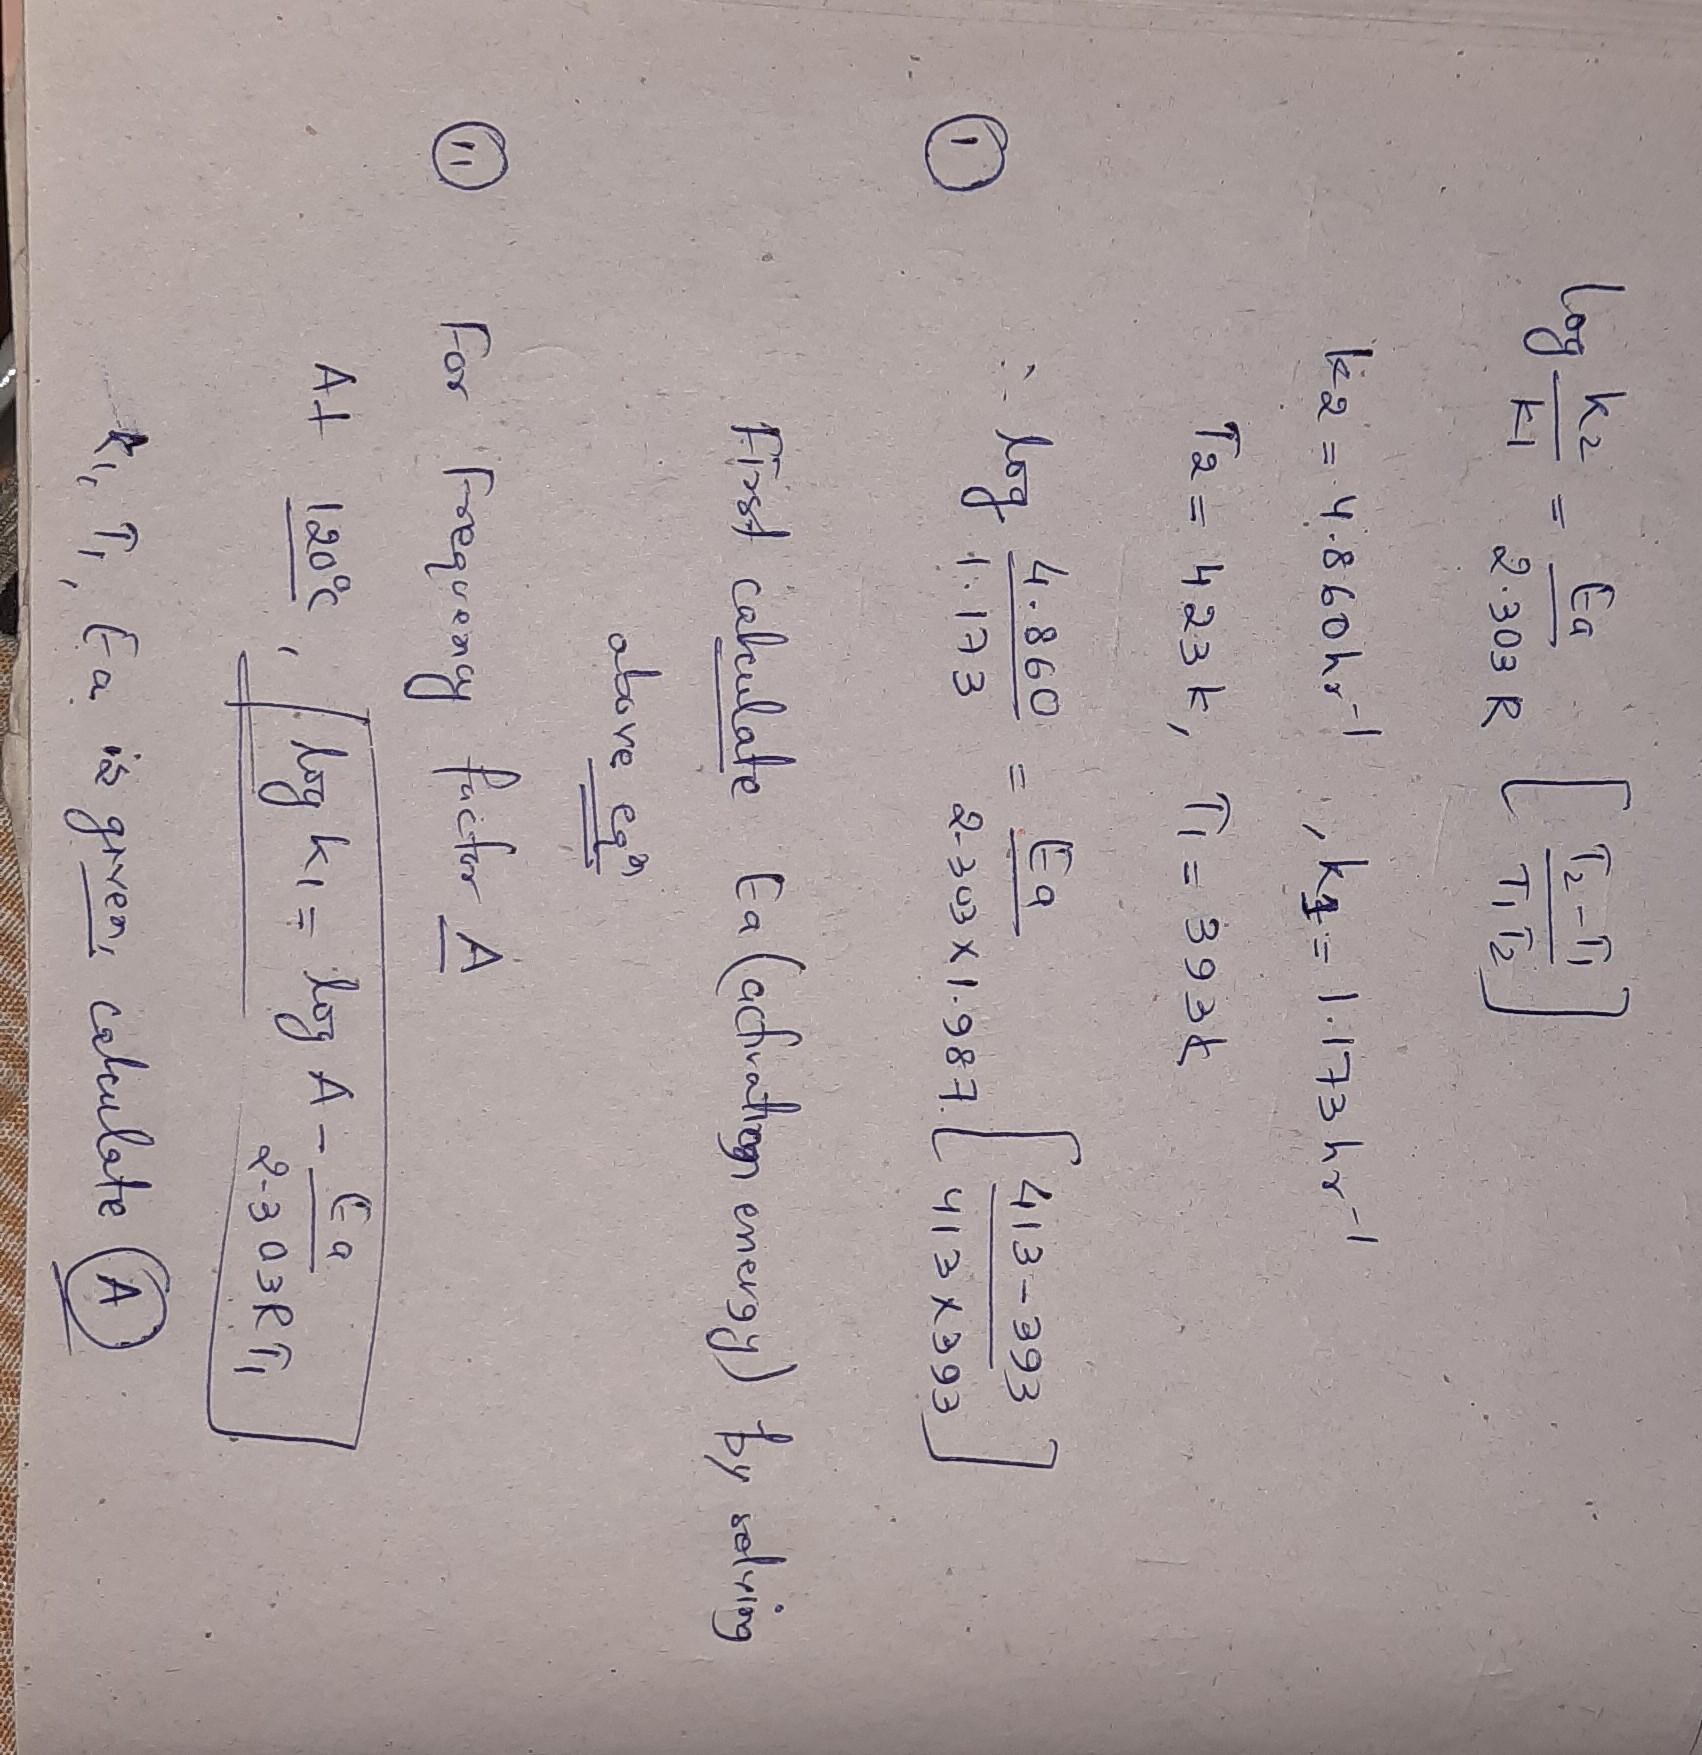 log k2/k1 = Ea/2.303R [T2-T1/T1T2]
k2 = 4.860hr-1, k1 = 1.173hr-1
T2 = 423k, T1 = 393k
(i) ∴ log 4.860/1.173 = Ea/2.303×1.987 [413-393/413×393]
First calculate Ea (activation energy) by solving
above eqn
(ii) For Frequency factor A
At 120°C, log k1 = log A - Ea/2.303RT1
k1, T1, Ea is given, calculate (A)